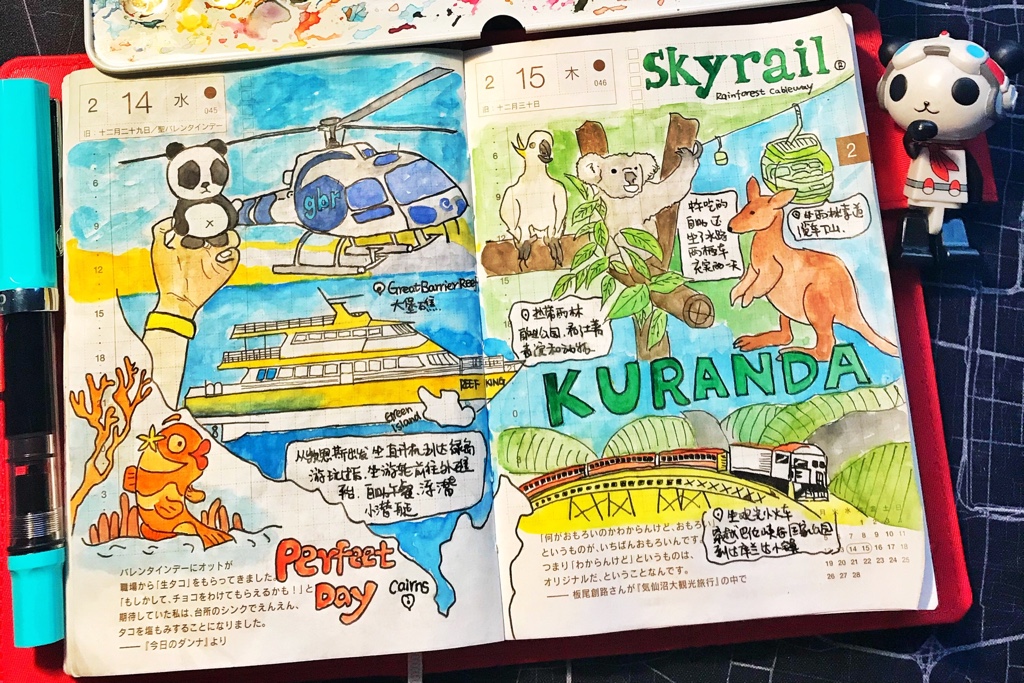 2 14 水
045
旧：十二月二十九日／聖バレンタインデー
gbr
GreatBarrierReef
大堡礁
REEF KING
Green
Island
从凯恩斯出发 坐直升机到达绿岛
游玩过后，坐游轮前往外堡
礁，自助午餐，浮潜
小潜艇
Perfect
Day
Cairns
バレンタインデーにオットが
職場から「生タコ」をもらってきました。
「もしかして、チョコをわけてもらえるかも！」と
期待していた私は、台所のシンクでえんえん、
タコを塩もみすることになりました。
——『今日のダンナ』より
2 15 木
046
旧：十二月三十日
skyrail
Rainforest Cableway
2
坐雨林索道
缆车下山.
好吃的
自助 还
坐了水陆
两栖车
充实的一天
热带雨林
动物公园，看土著
表演和动物.
KURANDA
坐观光小火车
穿越巴伦峡谷国家公园
到达库兰达小镇
「何がおもしろいのかわからんけど、おもしろい
というものが、いちばんおもしろいんです。
つまり「わからんけど」というものは、
オリジナルだ、ということなんです。
——板尾創路さんが『気仙沼大観光旅行』の中で
6
9
12
15
18
3
12 13 14 15 16 17 18
19 20 21 22 23 24 25
26 27 28